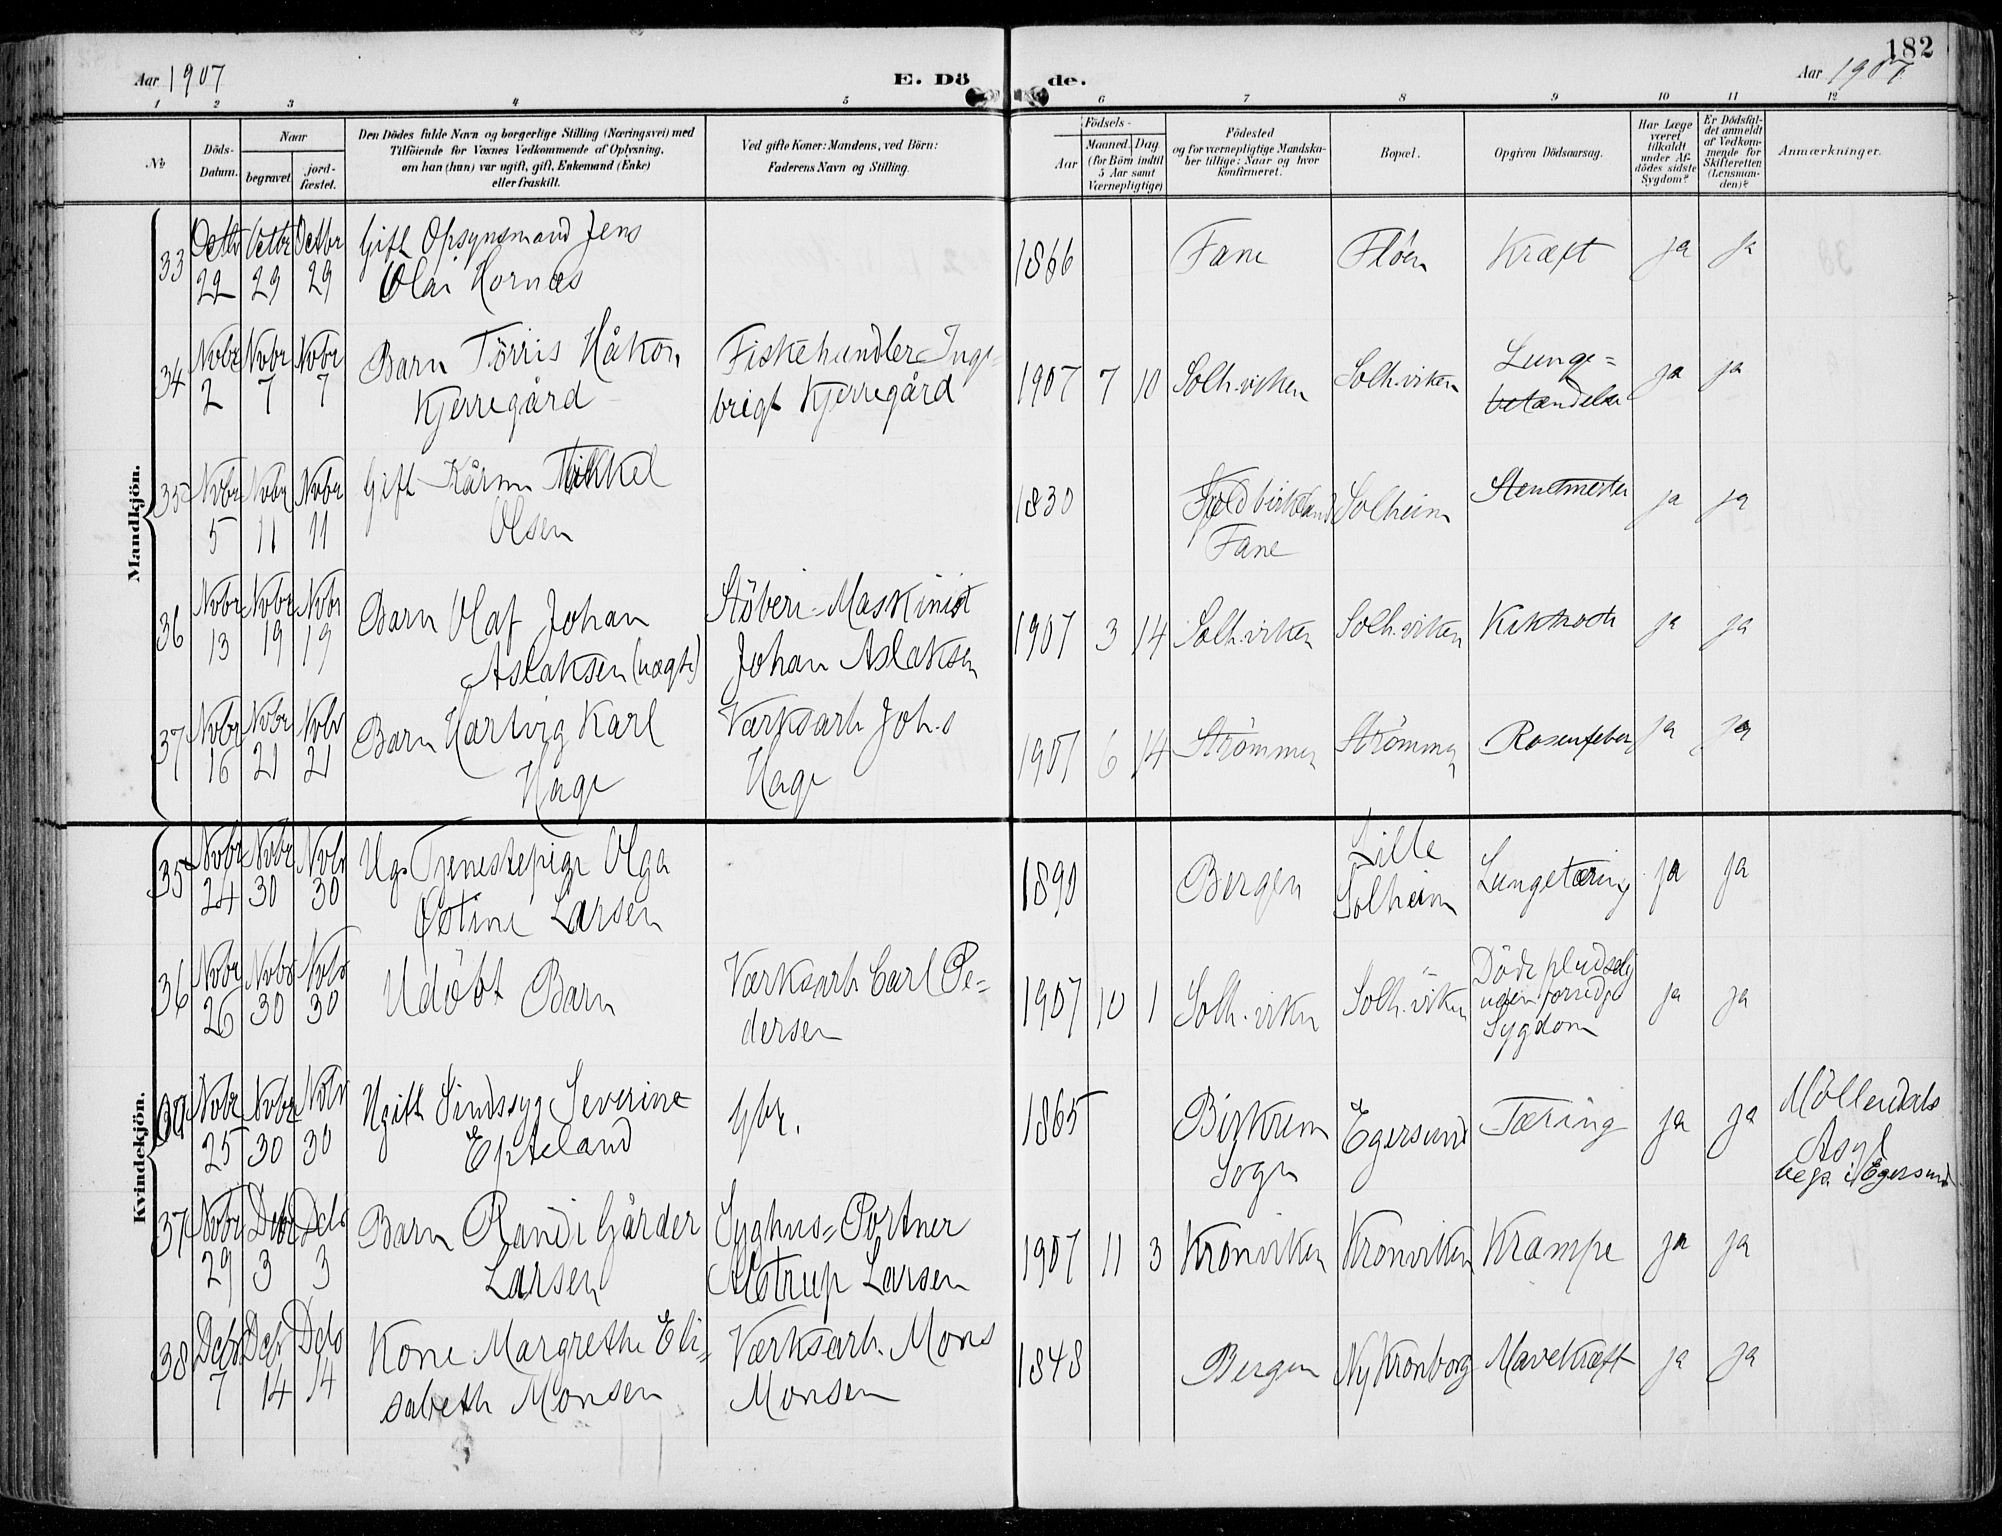 182
Aar 1907
E. Dö
de.
Aar 1907
1 2 3 4 5 6 7 8 9 10 11 12
No
Döds-
Datum.
Naar
begravet.
jord-
fæstet.
Den Dödes fulde Navn og borgerlige Stilling (Næringsvei) med
Tilföiende for Voxnes Vedkommende af Oplysning,
om han (hun) var ugift, gift, Enkemand (Enke)
eller fraskilt.
Ved gifte Koner: Mandens, ved Börn:
Faderens Navn og Stilling.
Födsels-
Aar
Maaned. Dag.
(for Börn indtil
5 Aar samt
Værnepligtige)
Födested
og for værnepligtige Mandska-
ber tillige: Naar og hvor
konfirmeret.
Bopæl.
Opgiven Dödsaarsag.
Har Læge
været
tilkaldt
under Af-
dödes sidste
Sygdom?
Er Dödsfal-
det anmeldt
af Vedkom-
mende for
Skifteretten
(Lensman-
den)?
Anmærkninger.
Mandkjön.
33 Octbr 22 Octbr 29 Octbr 29 Gift Opsynsmand Jens
Olai Hornæs
1866 Fane Fløen Kræft ja ja
34 Nvbr 2 Nvbr 7 Nvbr 7 Barn Tørris Håkon
Kjerregård
Fiskehandler Inge-
brigt Kjerregård
1907 7 10 Solh.viken Solh.viken Lunge=
betændelse ja ja
35 Nvbr 5 Nvbr 11 Nvbr 11 Gift Mikkel
Olsen
1830 Fjeldbirkeland
Fane
Solheim ja ja
36 Nvbr 13 Nvbr 19 Nvbr 19 Barn Olaf Johan
Aslaksen (uægte)
Stöberi-Maskinist
Johan Aslaksen
1907 3 14 Solh.viken Solh.viken ja ja
37 Nvbr 16 Nvbr 21 Nvbr 21 Barn Hartvig Karl
Hage
Værksarb Joh.s
Hage
1907 6 14 Strømmen Strømmen Rosenfeber ja ja
Kvindekjön.
35 Nvbr 24 Nvbr 30 Nvbr 30 Ug. Tjenestepige Olga
Østine Larsen
1890 Bergen Lille
Solheim
Lungetæring ja ja
36 Nvbr 26 Nvbr 30 Nvbr 30 Udöbt Barn
Værksarb Carl Pe=
dersen
1907 10 1 Solh.viken Solh.viken Döde pludselig
uden forudg
Sygdom ja ja
Nvbr 25 Nvbr 30 Nvbr 30 Ugift Sindssyg Severine
Epteland
Gbr.
1865 Birkrem
Sogn
Egersund Tæring ja ja Möllendals
Asyl
begr. i Egersund
37 Nvbr 29 Dcbr 3 Dcbr 3 Barn Randi Gårder
Larsen
Syghus= Portner
Alstrup Larsen
1907 11 3 Kronviken Kronviken Krampe ja ja
38 Dcbr 7 Dcbr 14 Dcbr 14 Kone Margrethe Eli=
sabeth Monsen
Værksarb. Mons
Monsen
1848 Bergen Ny Kronborg Mavekræft ja ja